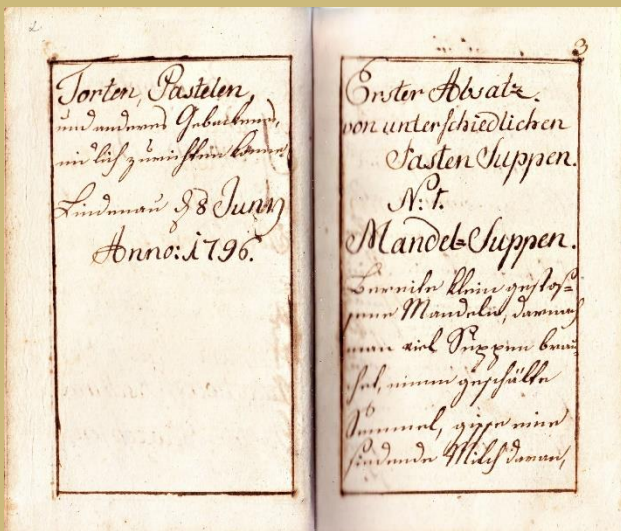 2
Torten, Pastelen,
und anderes Gebackenes,
nid lich zurichten kann
Lindenau d 8 Juny
Anno: 1796.
3
Erster Absatz.
von unterschiedlichen
Fasten Suppen.
N: 1.
Mandel=Suppen.
Bereite klein gestos=
sene Mandeln, darnach
man viel Suppen brau=
chet, einem geschälte
Semmel, giesse eine
siedende Milch daran,